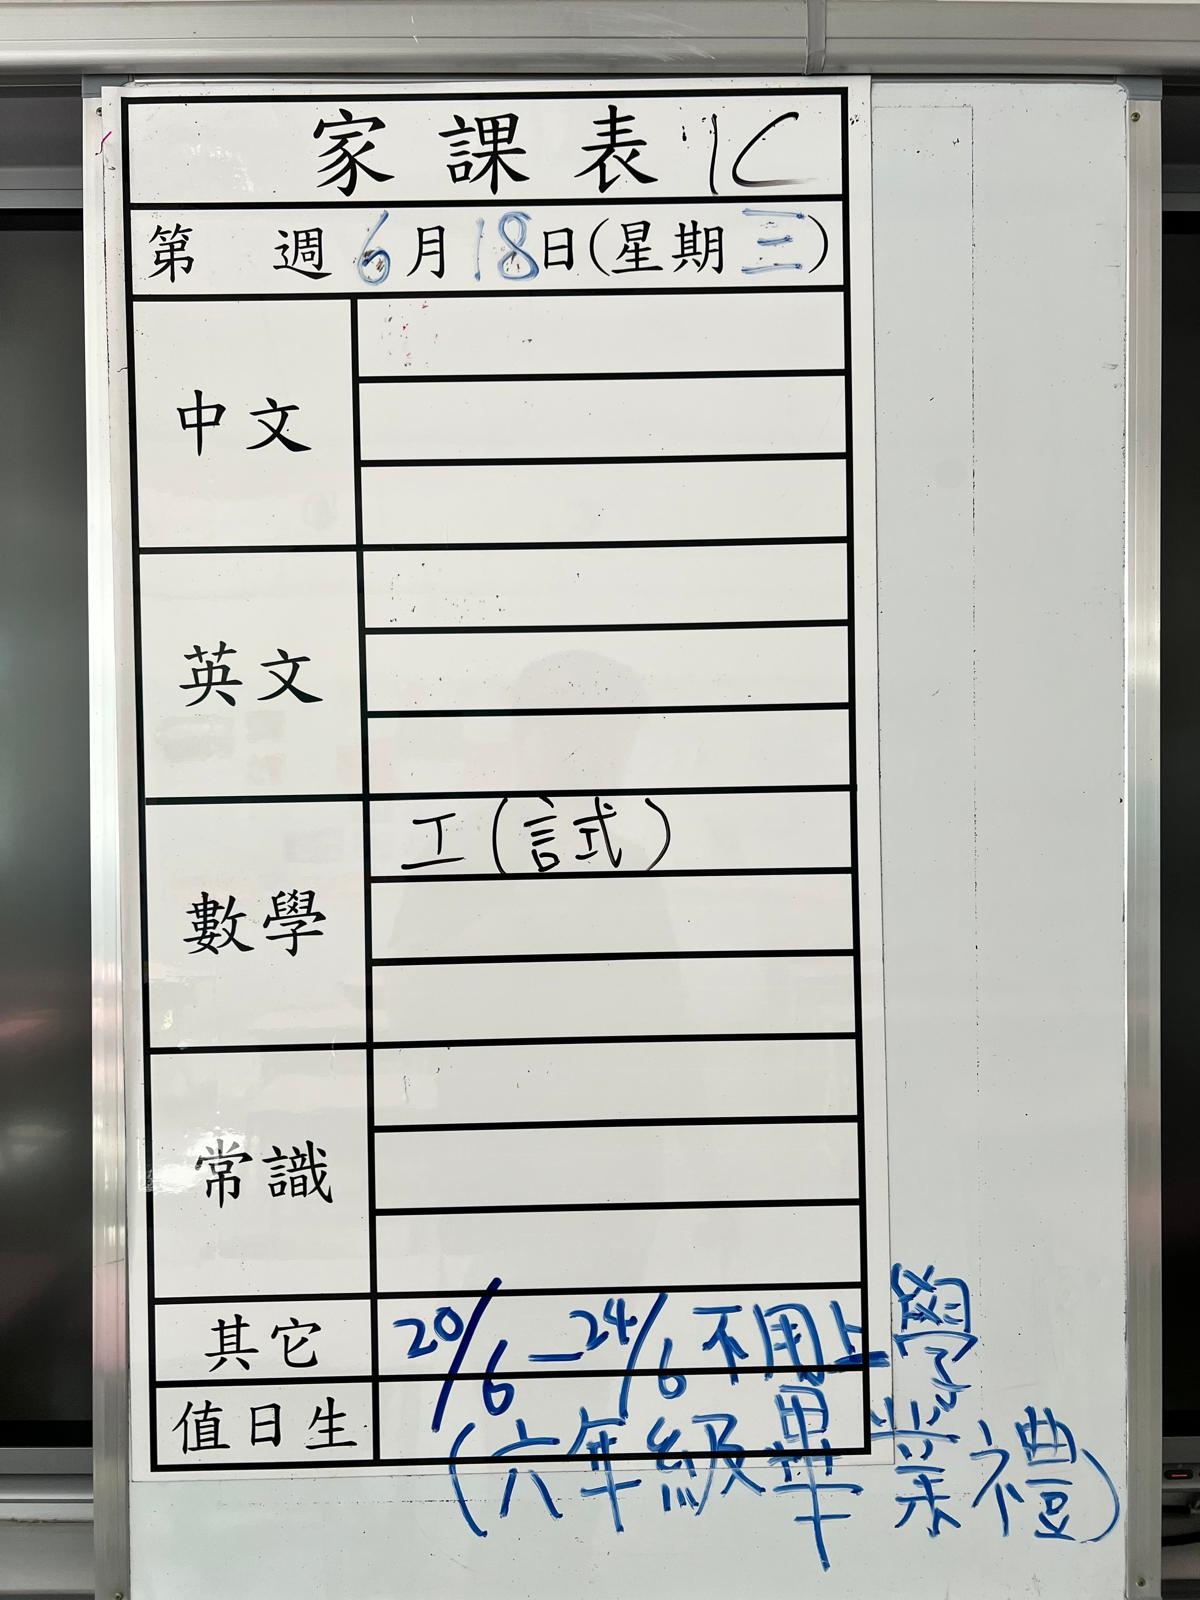 家課表 1C
第 週 6月18日(星期三)
中文
英文
數學
工(試)
常識
其它
20/6-24/6 不用上學
(六年級畢業禮)
值日生